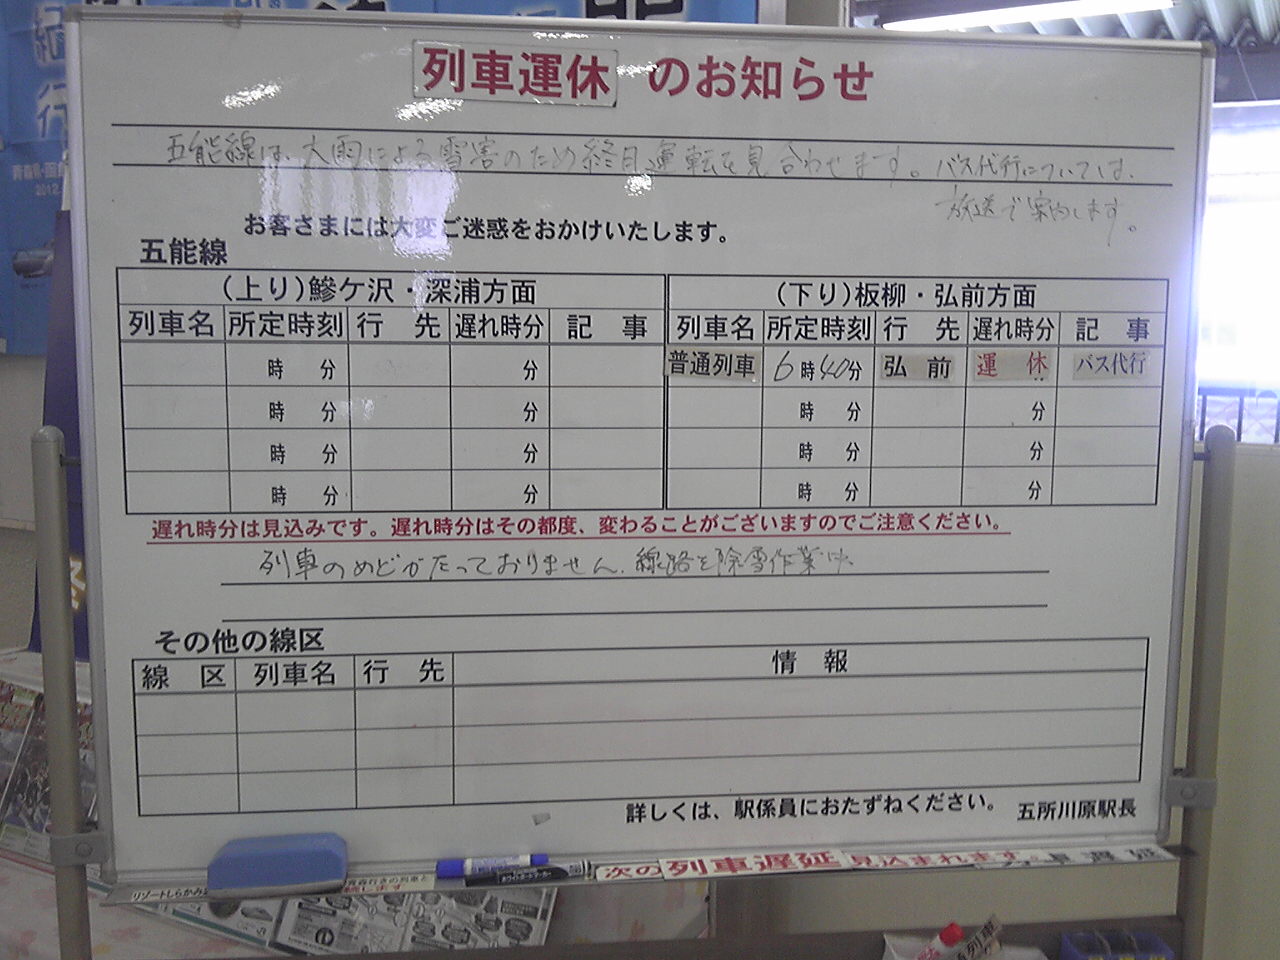 列車運休 のお知らせ
五能線は、大雨による雪害のため終日運転を見合わせます。バス代行については、
放送で案内します。
お客さまには大変ご迷惑をおかけいたします。
五能線
(上り)鰺ケ沢・深浦方面 (下り)板柳・弘前方面
列車名 所定時刻 行 先 遅れ時分 記 事 列車名 所定時刻 行 先 遅れ時分 記 事
時 分 分 普通列車 6時40分 弘 前 運 休 バス代行
時 分 分 時 分 分
時 分 分 時 分 分
時 分 分 時 分 分
遅れ時分は見込みです。遅れ時分はその都度、変わることがございますのでご注意ください。
列車のめどがたっておりません。線路を除雪作業中
その他の線区
線 区 列車名 行 先 情 報
詳しくは、駅係員におたずねください。 五所川原駅長
次の列車遅延見込まれます
リゾートしらかみ